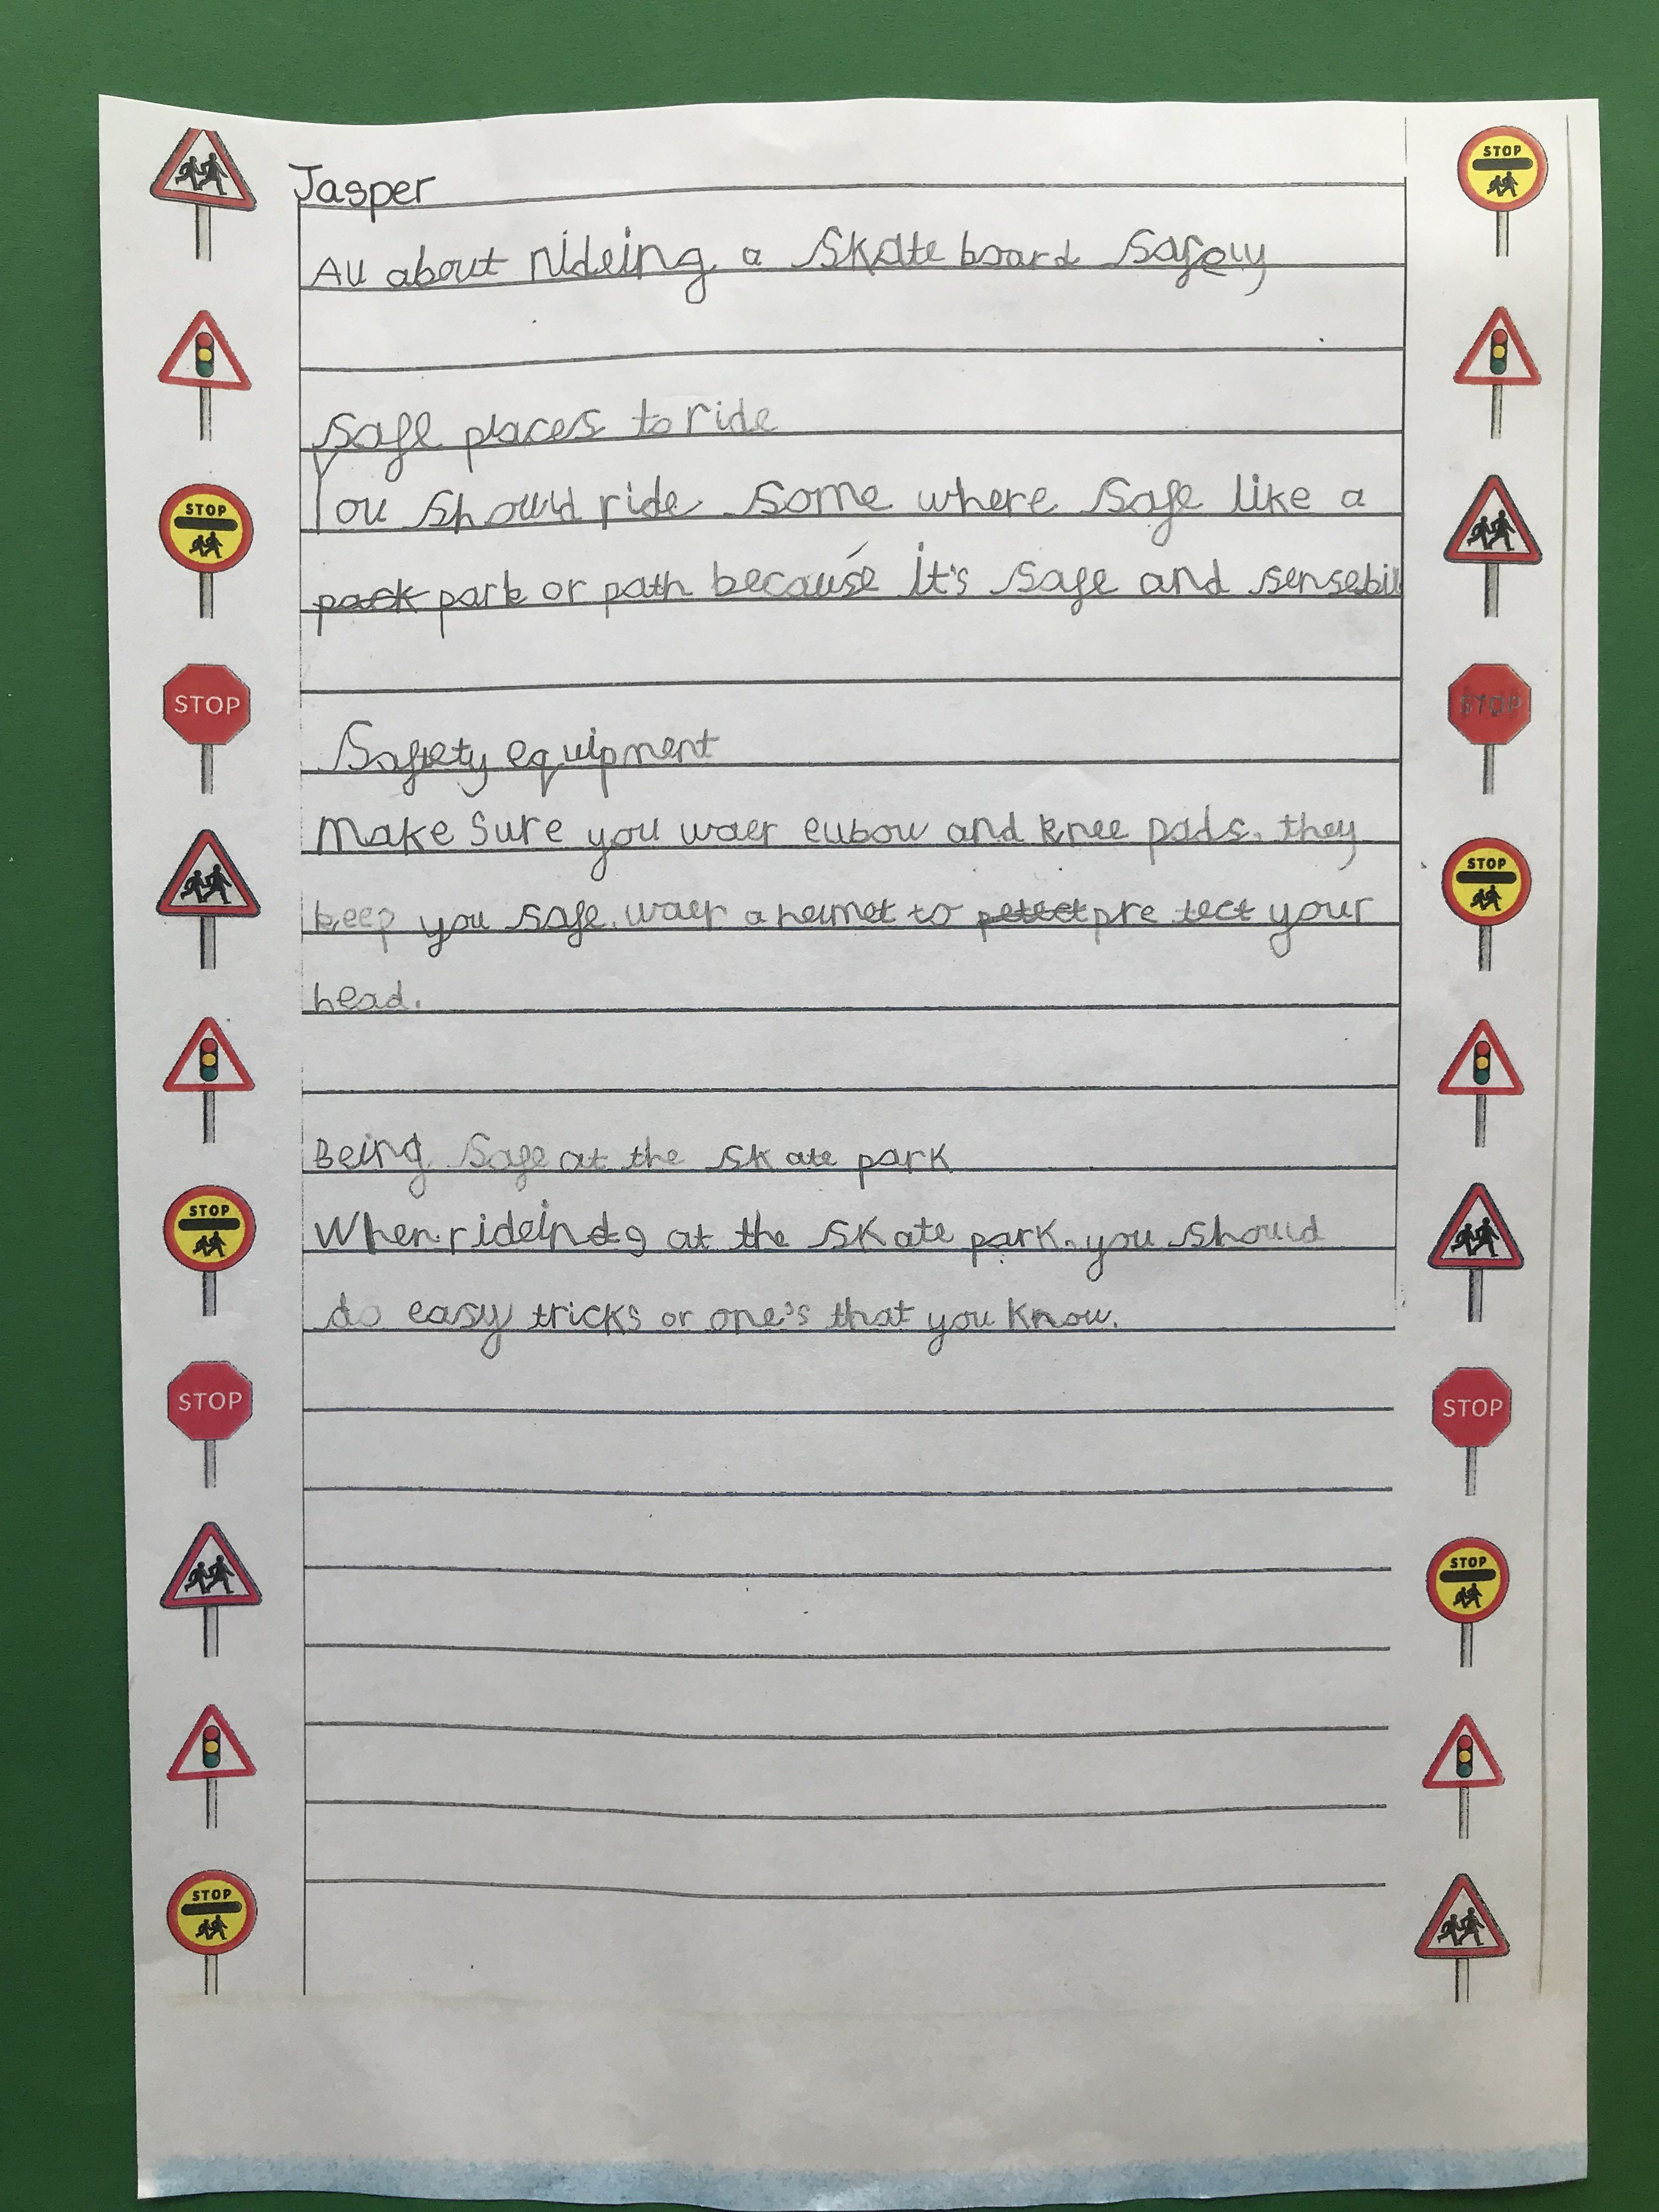 Jasper
All about rideing a skate board safely
Safe places to ride
You should ride some where safe like a
park or path because it's safe and sensebil
Safety equipment
Make sure you waer elbow and knee pads. they
keep you safe. waer a helmet to pre tect your
head.
Being safe at the skate park
When rideing at the skate park. you should
do easy tricks or one's that you know.
STOP
STOP
STOP
STOP
STOP
STOP
STOP
STOP
STOP
STOP